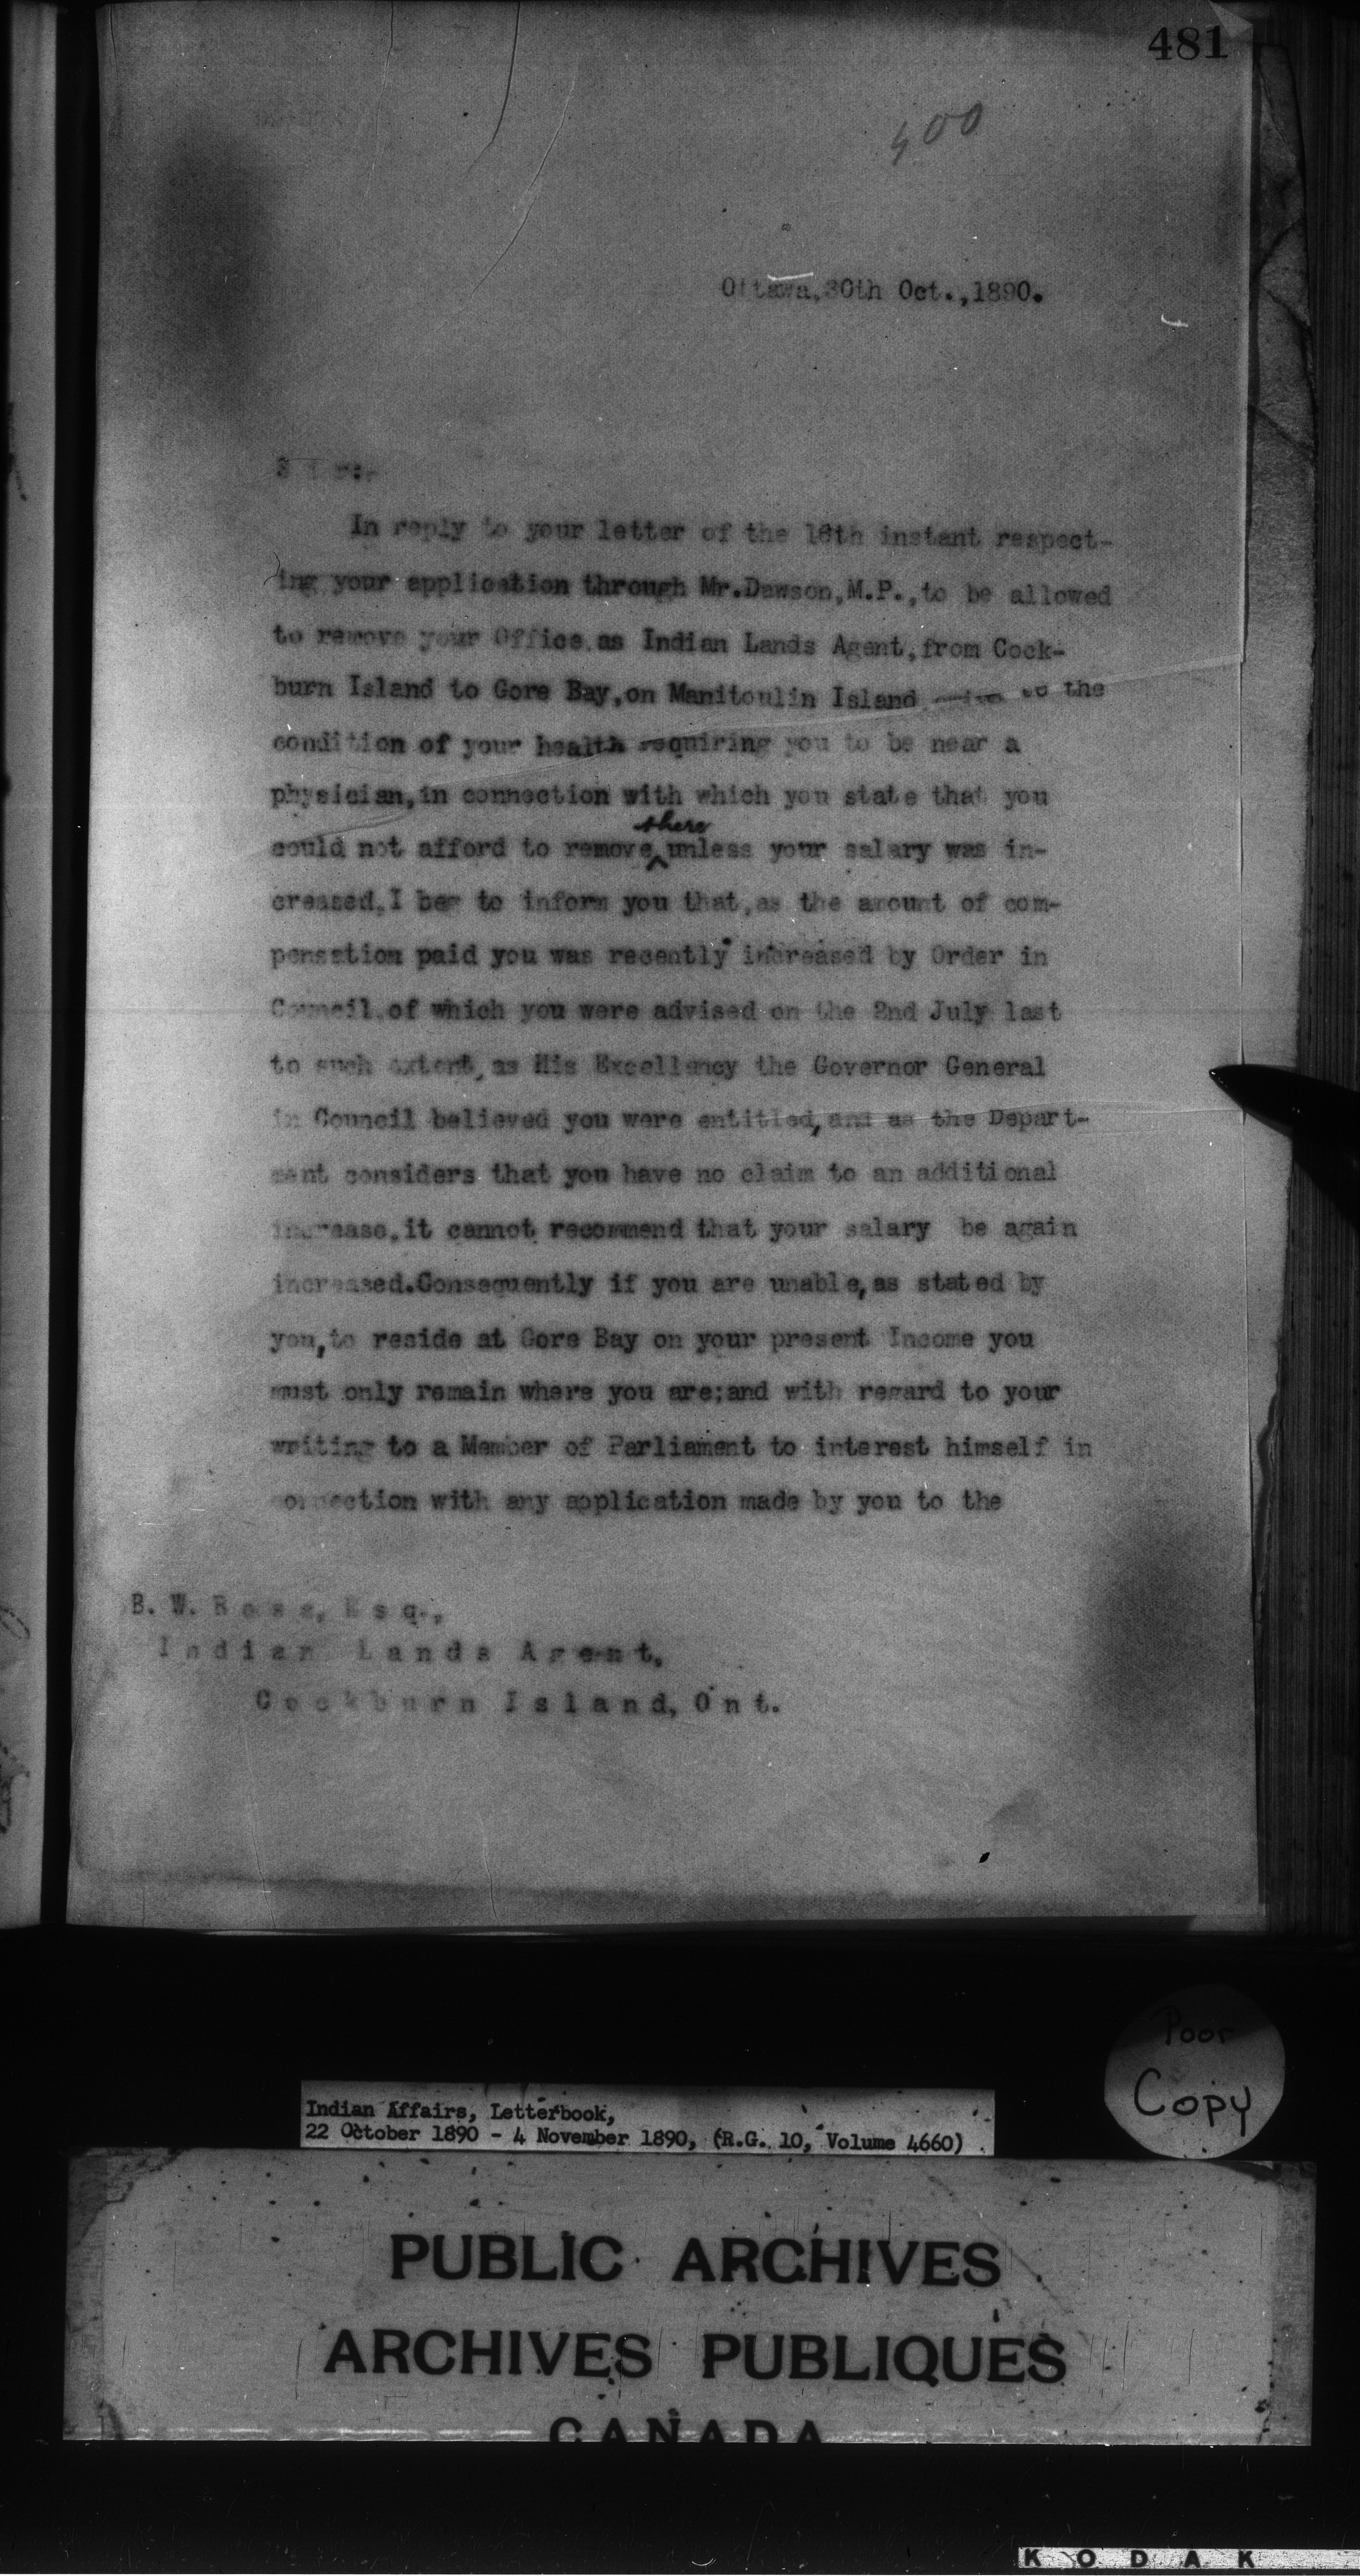 481
400
Ottawa, 30th Oct., 1890.
Sir:-
In reply to your letter of the 16th instant respect-
ing your application through Mr. Dawson, M.P., to be allowed
to remove your Office, as Indian Lands Agent, from Cock-
burn Island to Gore Bay, on Manitoulin Island to the
condition of your health requiring you to be near a
physician, in connection with which you state that you
could not afford to remove there unless your salary was in-
creased, I beg to inform you that, as the amount of com-
pensation paid you was recently increased by Order in
Council, of which you were advised on the 2nd July last
to such extent, as His Excellency the Governor General
in Council believed you were entitled, and as the Depart-
ment considers that you have no claim to an additional
increase, it cannot recommend that your salary be again
increased. Consequently if you are unable, as stated by
you, to reside at Gore Bay on your present Income you
must only remain where you are; and with regard to your
writing to a Member of Parliament to interest himself in
connection with any application made by you to the
B. W. Ross, Esq.,
Indian Lands Agent,
Cockburn Island, Ont.
Poor
Copy
Indian Affairs, Letterbook,
22 October 1890 - 4 November 1890, (R.G. 10, Volume 4660)
PUBLIC ARCHIVES
ARCHIVES PUBLIQUES
CANADA
KODAK